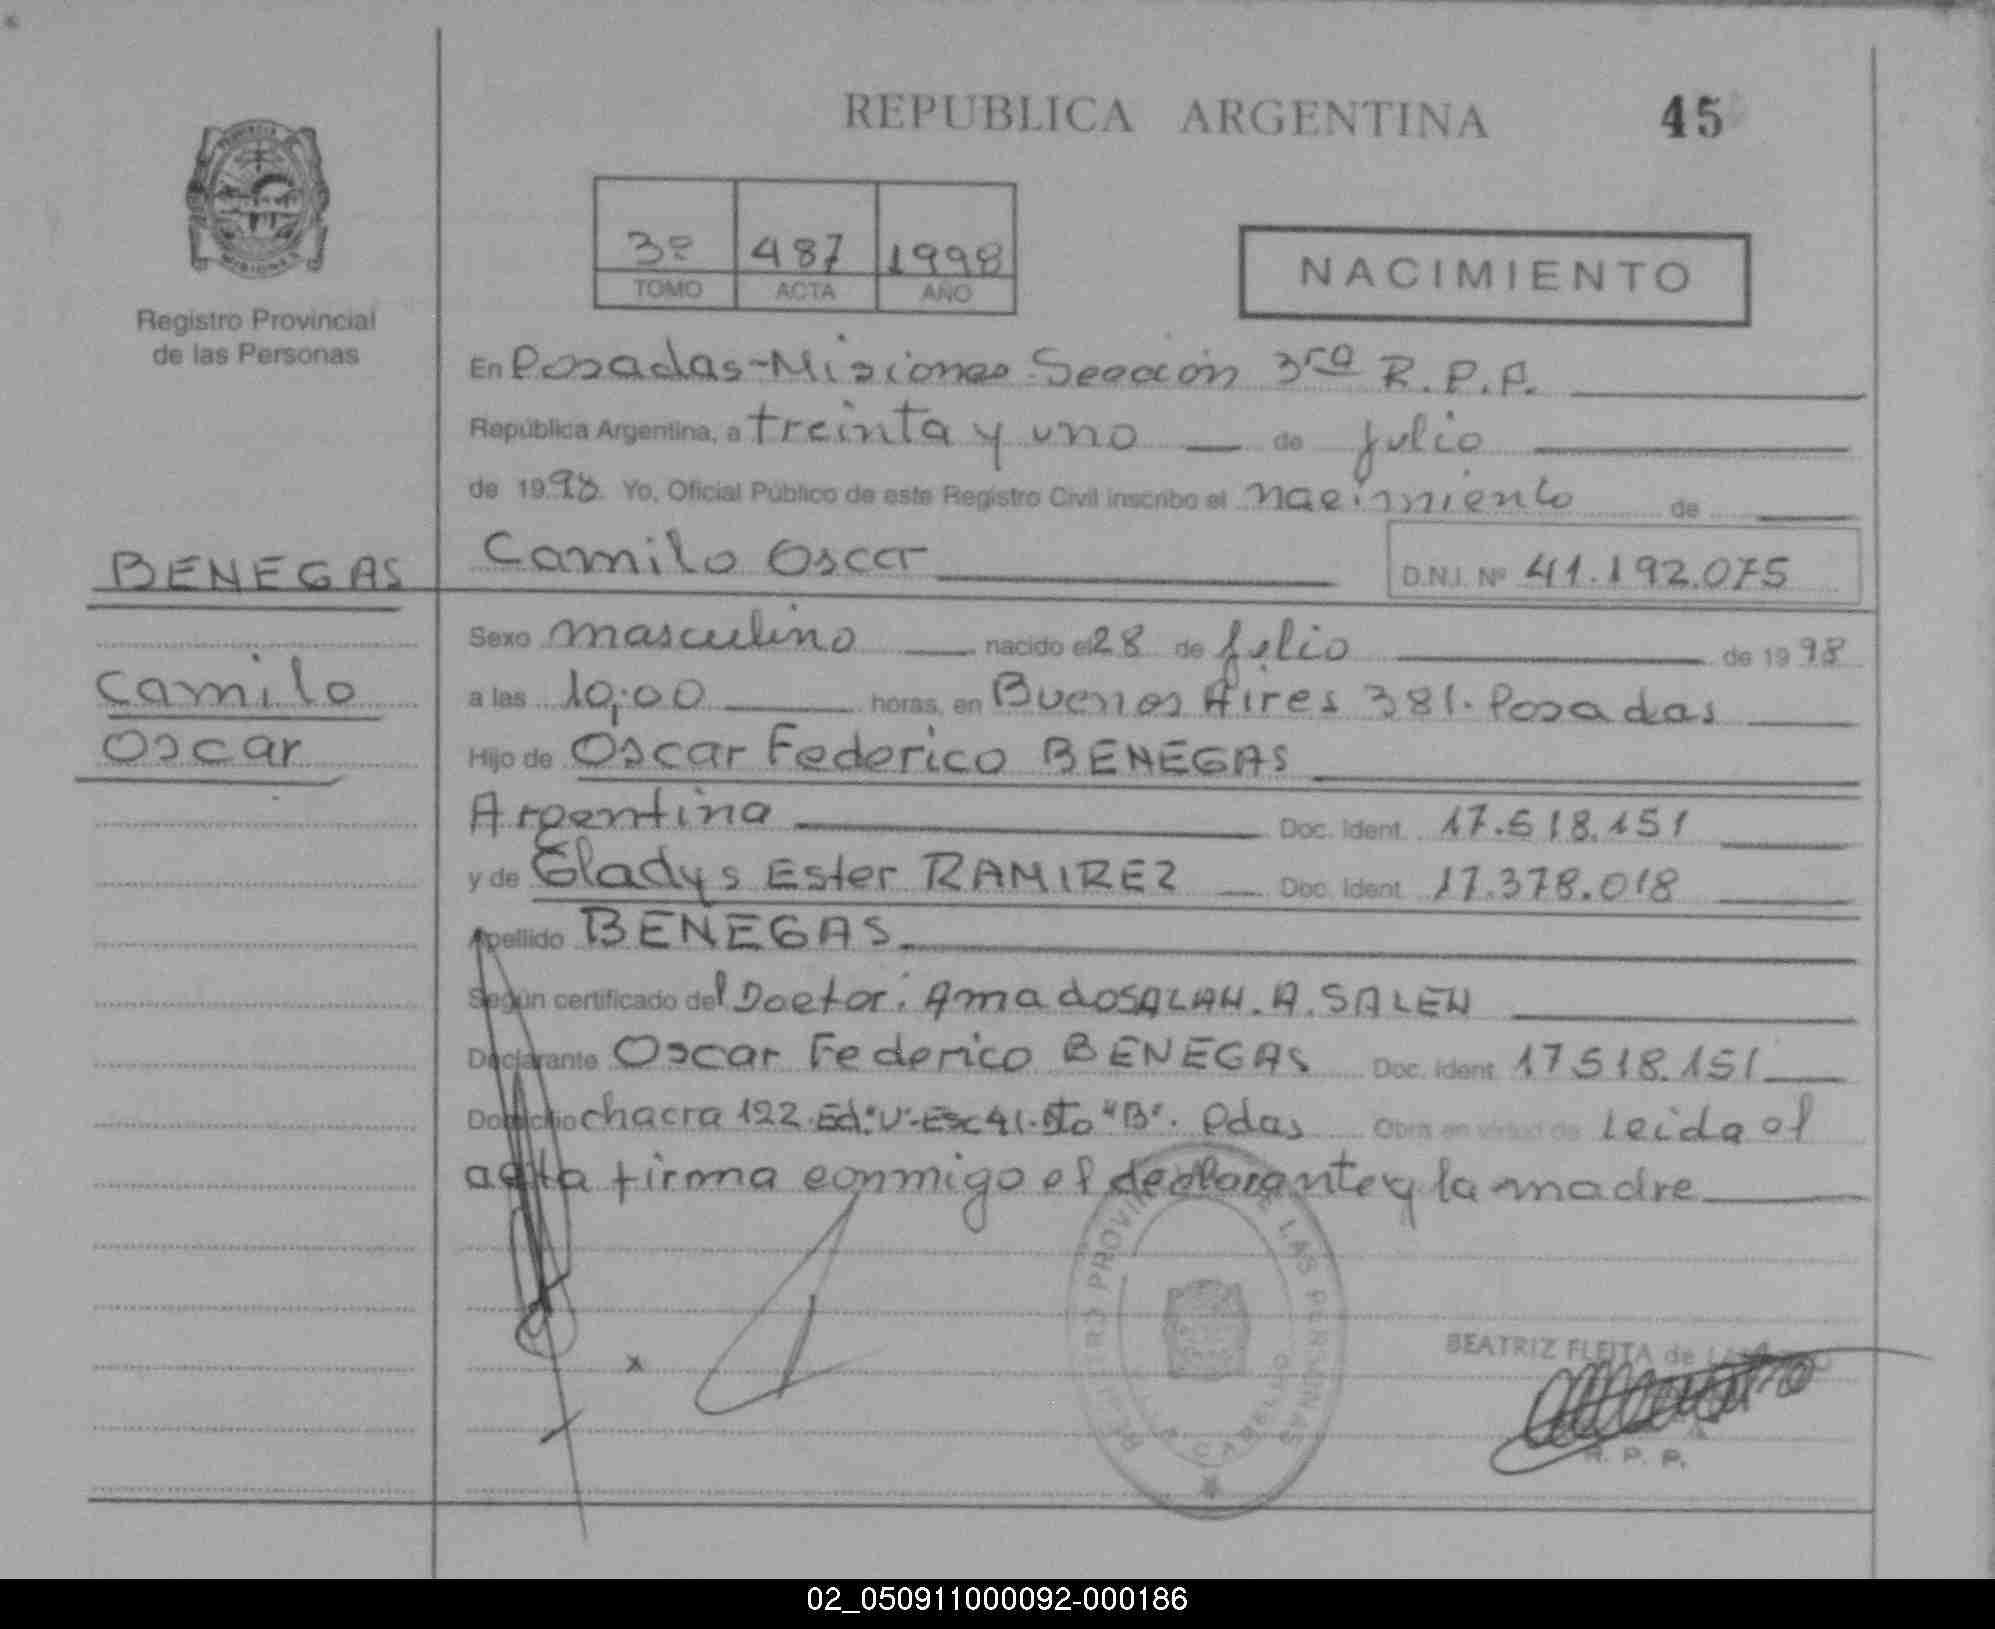 REPUBLICA ARGENTINA 45
PROVINCIA
MISIONES
Registro Provincial
de las Personas
3º 487 1998
TOMO ACTA AÑO
NACIMIENTO
En Posadas-Misiones-Sección 3ra R.P.P.
República Argentina, a treinta y uno de julio
de 1998. Yo, Oficial Público de este Registro Civil inscribo el nacimiento de
BENEGAS Camilo Oscar D.N.I. Nº 41.192.075
Sexo masculino nacido el 28 de julio de 1998
Camilo a las 10,00 horas, en Buenos Aires 381. Posadas
Oscar Hijo de Oscar Federico BENEGAS
Argentina Doc. Ident. 17.518.151
y de Gladys Ester RAMIREZ Doc. Ident. 17.378.018
Apellido BENEGAS
Según certificado del Doctor. Amado SALAH. A. SALEH
Declarante Oscar Federico BENEGAS Doc. Ident. 17518.151
Domicilio chacra 122. Ed."U"-Esc 41. Dto "B". Pdas Obra en virtud de Leida el
acta firma conmigo el declarante y la madre
REGISTRO PROVINCIAL DE LAS PERSONAS
BEATRIZ FLEITA de
x
R. P. P.
02_050911000092-000186